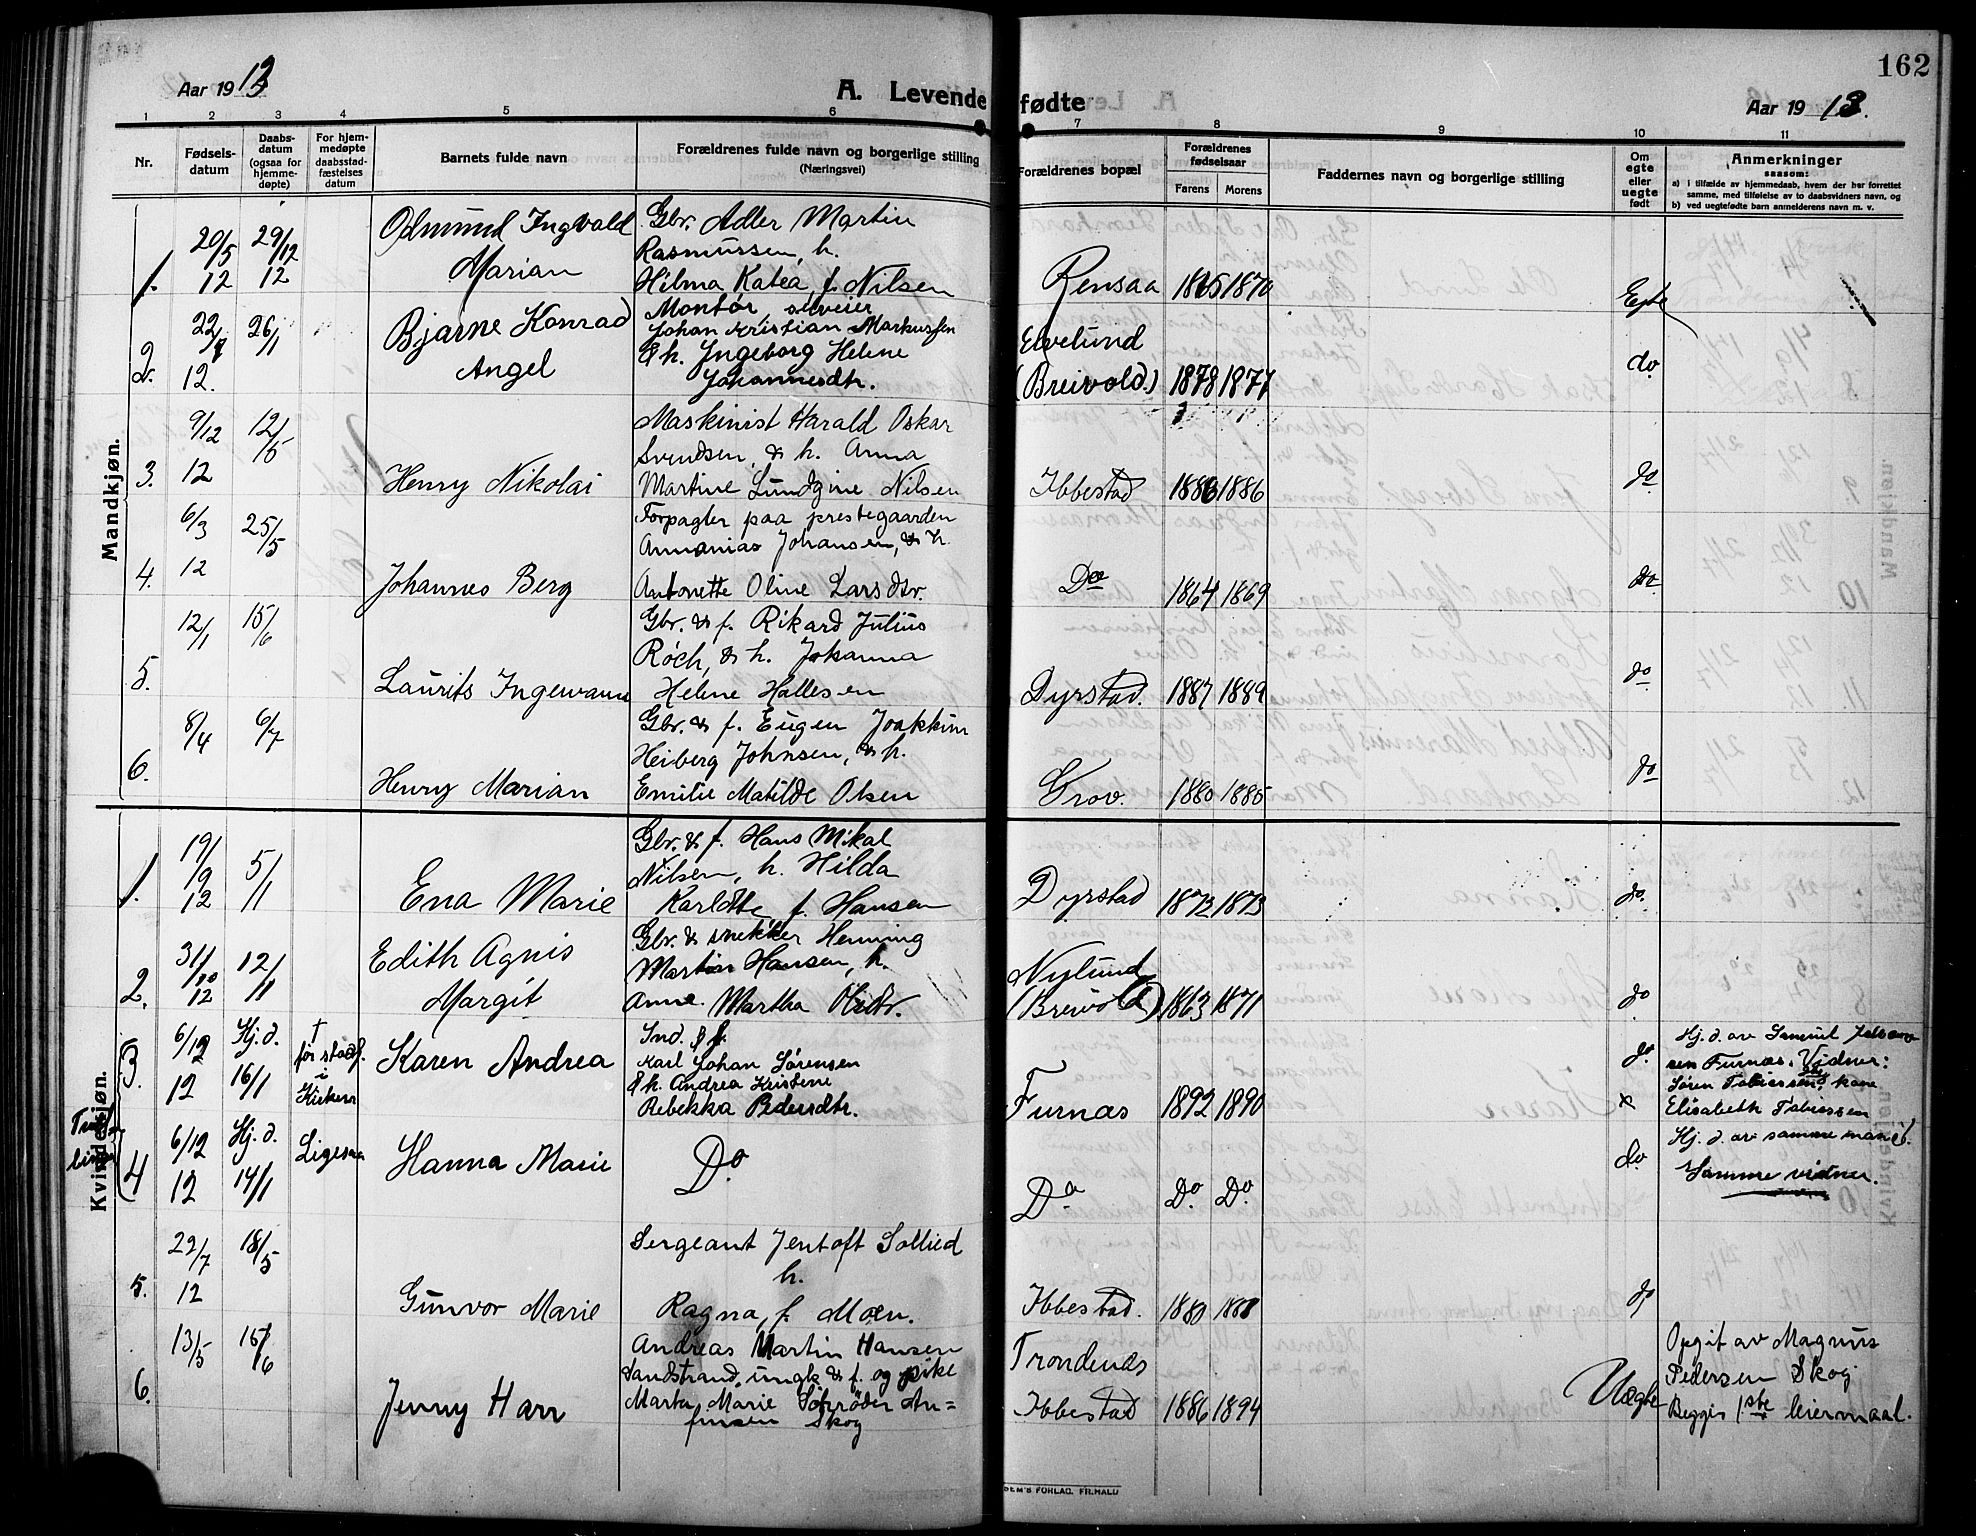 162
Aar 1913
A. Levende fødte
Aar 1913.
1 2 3 4 5 6 7 8 9 10 11
Nr.
Fødsels-
datum
Daabs-
datum
(ogsaa for
hjemme-
døpte)
For hjem-
medøpte
daabsstad-
fæstelses
datum
Barnets fulde navn
Forældrenes fulde navn og borgerlige stilling
(Næringsvei)
Forældrenes bopæl
Forældrenes
fødselsaar
Farens Morens
Faddernes navn og borgerlige stilling
Om
egte
eller
uegte
født
Anmerkninger
saasom:
a) i tilfælde av hjemmedaab, hvem der har forrettet
samme, med tilføielse av to daabsvidners navn, og
b) ved uegtefødte barn anmelderens navn m. v.
Mandkjøn.
1. 20/5 12 29/12 12
Odmund Ingvald
Marian
Gbr. Adler Martin
Rasmussen, h.
Hilma Katea, f. Nilsen
Rensaa 1865 1870 Egte
2. 22/7 12. 26/1
Bjarne Konrad
Angel
Montør, selveier
Johan Kristian Markussen
& h. Ingeborg Helene
Johannesdtr.
Elvelund
(Breivold.) 1878 1877 do
3. 9/12 12 12/5
Henry Nikolai
Maskinist Harald Oskar
Svendsen, & h. Anna
Martine Lundgine Nilsen
Ibbestad 1886 1886 do
4. 6/3 12 25/5
Johannes Berg
Forpagter paa prestegaarden
Annanias Johansen, & h.
Antonette Oline Larsdtr.
Do 1864 1869 do
5. 12/1 15/6
Laurits Ingemann
Gbr. & f. Rikard Julius
Røch, & h. Johanna
Helene Hallesen
Dyrstad. 1887 1889 do
6. 8/4 6/7
Henry Marian
Gbr. & f. Eugen Joakkim
Heiberg Johnsen, & h.
Emilie Matilde Olsen
Grov. 1880 1885 do
Kvindekjøn.
1. 19/9 12 5/1
Ena Marie
Gbr. & f. Hans Mikal
Nilsen, h. Hilda
Karlotte f. Hansen
Dyrstad 1872 1873 do.
2. 31/10 12 12/1
Edith Agnis
Margit
Gbr. & snekker Henning
Martin Hansen, h.
Anne Martha Olsdtr.
Nylund
(Breivold). 1863 1871 do
3. 6/12 12 Hj. d. 16/1
† før stadf.
i
Kirken
Karen Andrea
Ind. & f.
Karl Johan Sørensen
& h. Andrea Kristine
Rebekka Pedersdtr.
Furnas 1892 1890 do
Sen Furnæs. Vidner:
Søren Tobiassen & kone
Elisabeth Tobiassen
4 6/12 12 Hj. d. 14/1
Ligesaa
Hanna Marie
Do.
Do Do. Do. do.
Hj. d. av samme mand.
Samme vidner.
5. 22/7 12 18/5
Gunvor Marie
Sergeant Jentoft Sollied
h.
Ragna, f. Moen.
Ibbestad. 1880 1888 do
6. 13/5 15/6
Jenny Harr
Andreas Martin Hansen
Sandstrand, ungk & f. og pike
Marta Marie Schrøder An=
finsen Skog
Trondenes
Ibbestad 1886 1894 Uegte
Opgit av Magnus
Pedersen Skog
Begges 1ste leiermaal.
FORLAG. FR.HALD